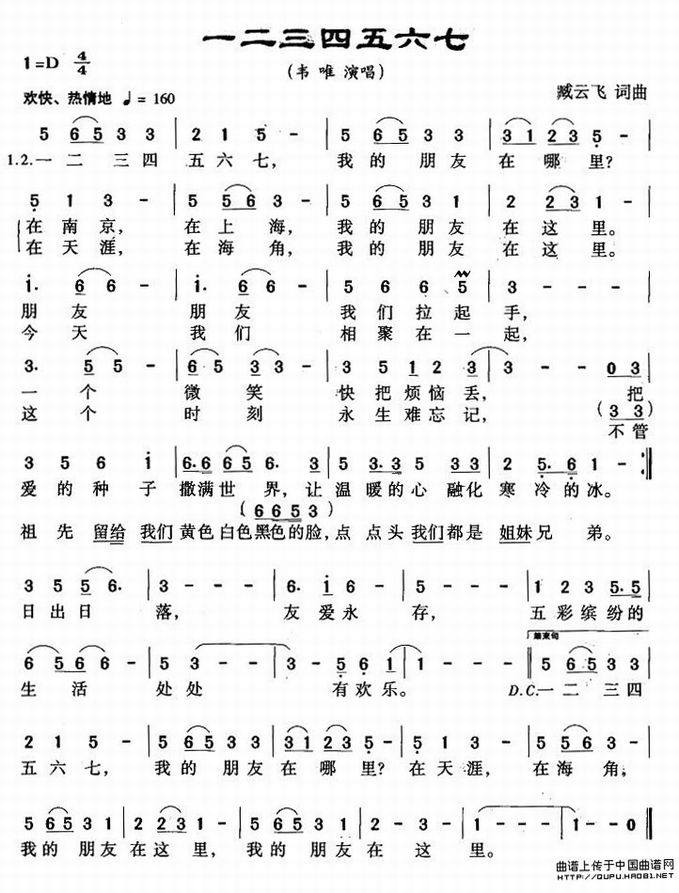 一二三四五六七
1=D 4/4
(韦 唯 演唱)
欢快、热情地 ♩= 160
臧云飞 词曲
5 6 5 3 3 | 2 1 5 - | 5 6 5 3 3 | 3 1 2 3 5 - |
1.2.一 二 三 四 五 六 七, 我 的 朋 友 在 哪 里?
5 1 3 - | 5 5 6 3 - | 5 6 5 3 1 | 2 2 3 1 - |
在 南 京, 在 上 海, 我 的 朋 友 在 这 里。
在 天 涯, 在 海 角, 我 的 朋 友 在 这 里。
i. 6 6 - | i. 6 6 - | 5 6 6 5 | 3 - - - |
朋 友 朋 友 我 们 拉 起 手,
今 天 我 们 相 聚 在 一 起,
3. 5 5 - | 6 5 3 3 - | 3 5 1 2 3 | 3 - - 0 3 |
一 个 微 笑 快 把 烦 恼 丢, 把
这 个 时 刻 永 生 难 忘 记, (3 3)
不 管
3 5 6 i | 6. 6 6 5 6. 3 | 5 3. 5 5 3 | 2 5. 6 1 - :‖
爱 的 种 子 撒 满 世 界, 让 温 暖 的 心 融 化 寒 冷 的 冰。
(6 6 5 3)
祖 先 留给 我们 黄色 白色 黑色 的 脸, 点 点 头 我们 都是 姐妹 兄 弟。
3 5 5 6. | 3 - - - | 6. i 6 6 | 5 - - - | 1 2 3 5. 5 |
日 出 日 落, 友 爱 永 存, 五 彩 缤 纷 的
结束句
6 5 6 5 - | 5 3 - - | 3 - 5 6 1 | 1 - - - ‖ 5 6 5 3 3 |
生 活 处 处 有 欢 乐。 D.C.一 二 三 四
2 1 5 - | 5 6 5 3 3 | 3 1 2 3 5 - | 5 1 3 - | 5 5 6 3 - |
五 六 七, 我 的 朋 友 在 哪 里? 在 天 涯, 在 海 角,
5 6 5 3 1 | 2 2 3 1 - | 5 6 5 3 1 | 2 - 2 3 | 1 - - - | 1 - 0 0 ‖
我 的 朋 友 在 这 里, 我 的 朋 友 在 这 里。
曲谱上传于中国曲谱网
HTTP://QUPU.HAO81.NET